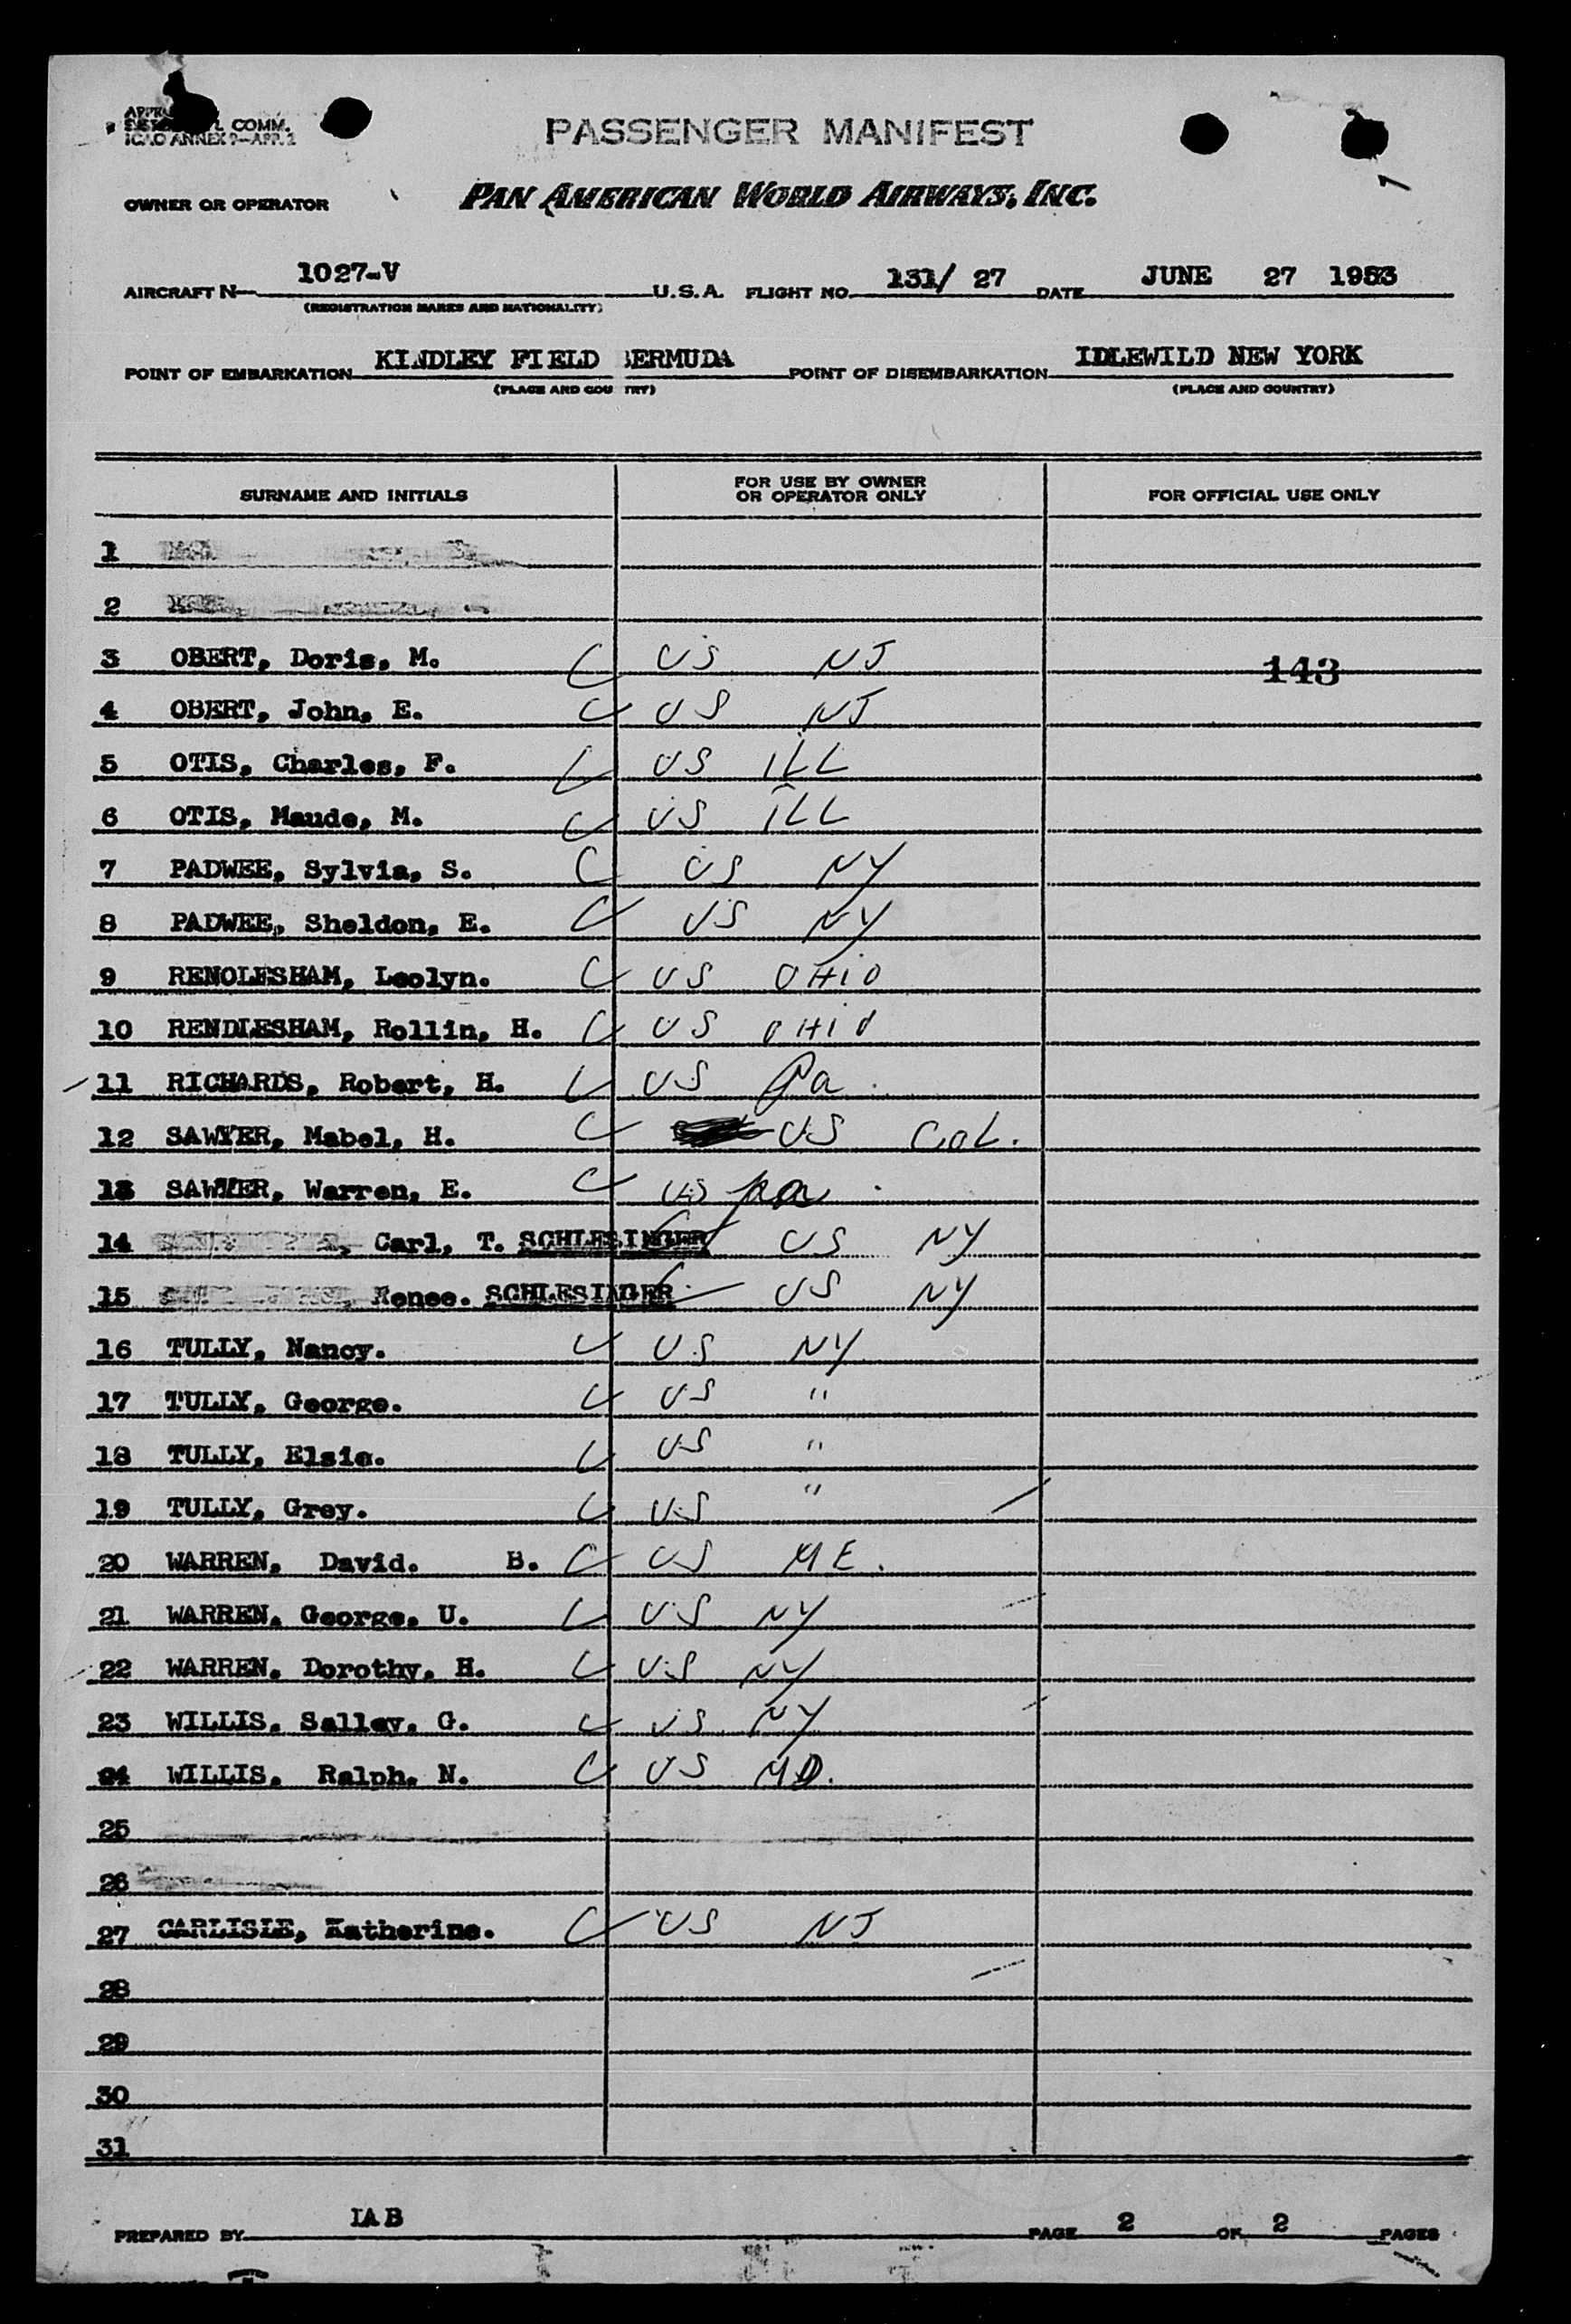 COMM.
ICAO ANNEX 9-APP. 2
PASSENGER MANIFEST
OWNER OR OPERATOR PAN AMERICAN WORLD AIRWAYS, INC.
AIRCRAFT N 1027-V U.S.A. FLIGHT NO. 131/ 27 DATE JUNE 27 1953
(REGISTRATION MARKS AND NATIONALITY)
POINT OF EMBARKATION KINDLEY FIELD BERMUDA POINT OF DISEMBARKATION IDLEWILD NEW YORK
(PLACE AND COUNTRY) (PLACE AND COUNTRY)
SURNAME AND INITIALS FOR USE BY OWNER OR OPERATOR ONLY FOR OFFICIAL USE ONLY
1
2
3 OBERT, Doris, M. US NJ 143
4 OBERT, John, E. US NJ
5 OTIS, Charles, F. US ILL
6 OTIS, Maude, M. US ILL
7 PADWEE, Sylvia, S. US NY
8 PADWEE, Sheldon, E. US NY
9 RENOLESHAM, Leolyn. US OHIO
10 RENDLESHAM, Rollin, H. US OHIO
11 RICHARDS, Robert, H. US Pa.
12 SAWYER, Mabel, H. US CAL.
13 SAWYER, Warren, E. US pa.
14 Carl, T. SCHLESINGER US NY
15 Renee. SCHLESINGER US NY
16 TULLY, Nancy. US NY
17 TULLY, George. US "
18 TULLY, Elsie. US "
19 TULLY, Grey. US "
20 WARREN, David. B. US ME.
21 WARREN, George, U. US NY
22 WARREN, Dorothy, H. US NY
23 WILLIS, Salley, G. US NY
24 WILLIS, Ralph, N. US MD.
25
26
27 CARLISLE, Katherine. US NJ
28
29
30
31
PREPARED BY IAB PAGE 2 OF 2 PAGES